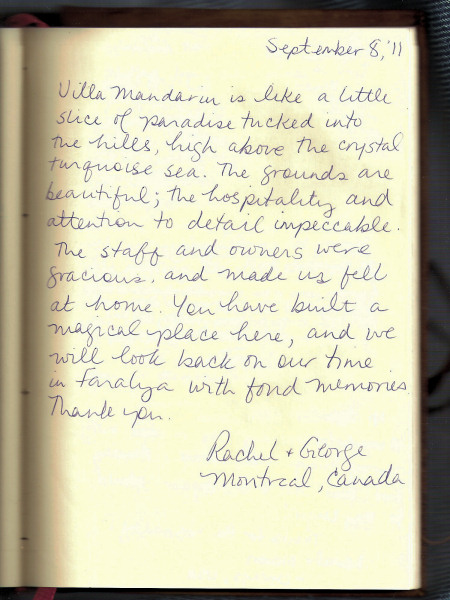 September 8, '11
Villa Mandarin is like a little
slice of paradise tucked into
the hills, high above the crystal
turquoise sea. The grounds are
beautiful; the hospitality and
attention to detail impeccable.
The staff and owners were
gracious, and made us fell
at home. You have built a
magical place here, and we
will look back on our time
in Faralya with fond memories.
Thank you.
Rachel + George
Montreal, Canada